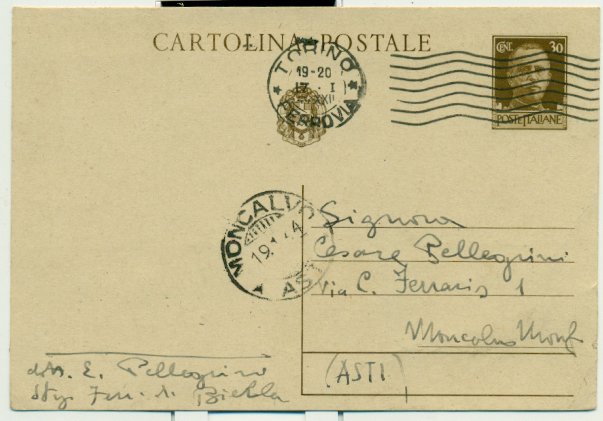 CARTOLINA POSTALE
CENT. 30
POSTE ITALIANE
TORINO
19-20
17 · I
XXII
FERROVIA
MONCALVO
ASTI
Signora
Cesare Pellegrini
Via C. Ferraris 1
Moncalvo Monf
(ASTI)
E. Pellegrini
Biella